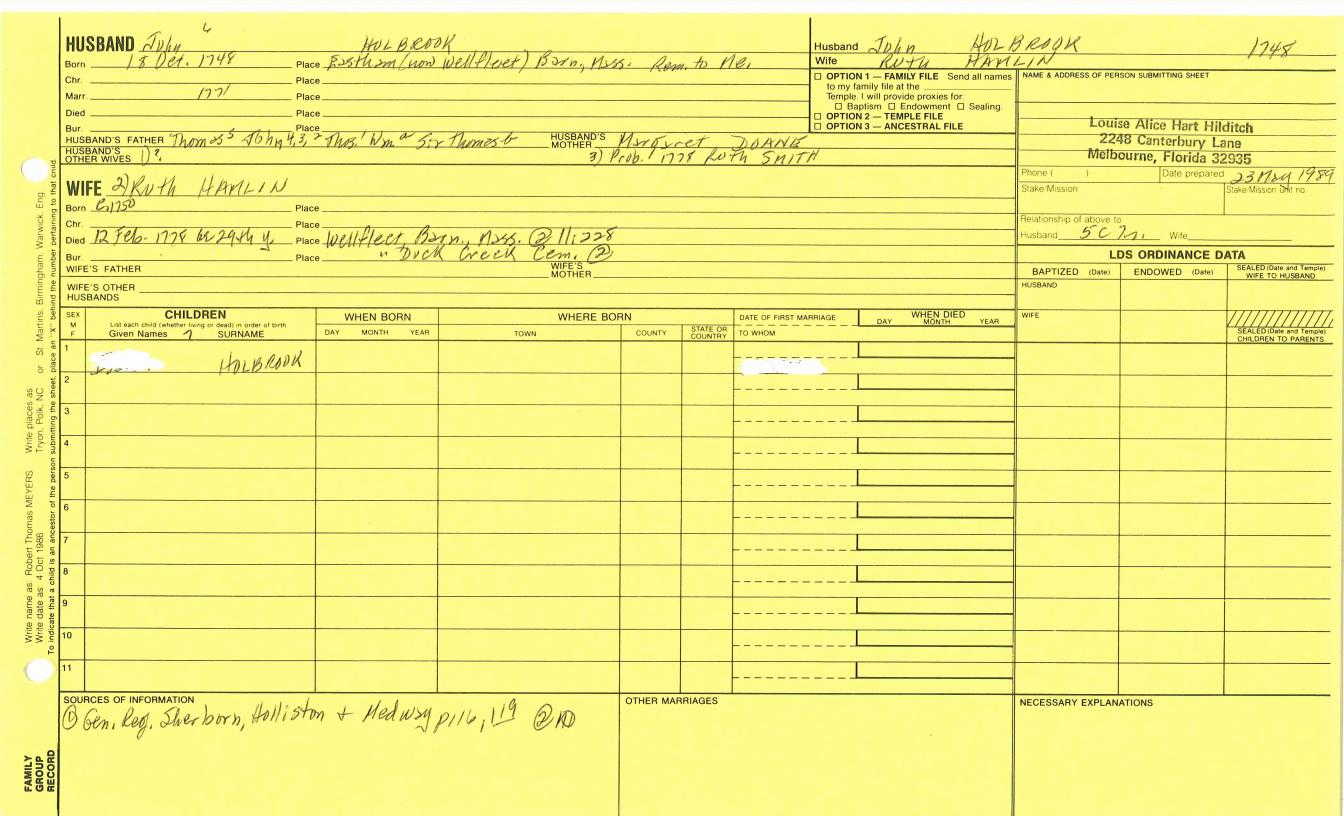 HUSBAND John 6 HOLBROOK
Born 18 Oct. 1748 Place Eastham (now Wellfleet) Barn., Mass. Rem. to Me.
Chr. Place
Marr. 1771 Place
Died Place
Bur. Place
HUSBAND'S FATHER Thomas 5 John 4,3, 2 Thos. 1 Wm a Sir Thomas b HUSBAND'S MOTHER Margaret DOANE
HUSBAND'S OTHER WIVES 1) ? 3) Prob. 1778 Ruth SMITH
WIFE 2) Ruth HAMLIN
Born C.1750 Place
Chr. Place
Died 12 Feb. 1778 in 29th y. Place Wellfleet, Barn., Mass. ② 11:228
Bur. Place " Duck Creek Cem. ②
WIFE'S FATHER WIFE'S MOTHER
WIFE'S OTHER HUSBANDS
Husband John HOLBROOK 1748
Wife RUTH HAMLIN
☐ OPTION 1 — FAMILY FILE Send all names
to my family file at the
Temple. I will provide proxies for:
☐ Baptism ☐ Endowment ☐ Sealing.
☐ OPTION 2 — TEMPLE FILE
☐ OPTION 3 — ANCESTRAL FILE
NAME & ADDRESS OF PERSON SUBMITTING SHEET
Louise Alice Hart Hilditch
2248 Canterbury Lane
Melbourne, Florida 32935
Phone ( ) Date prepared 23 May 1989
Stake/Mission Stake/Mission Unit no.
Relationship of above to
Husband 5C Wife
LDS ORDINANCE DATA
BAPTIZED (Date) ENDOWED (Date) SEALED (Date and Temple) WIFE TO HUSBAND
HUSBAND
WIFE
SEALED (Date and Temple) CHILDREN TO PARENTS
SEX M F
CHILDREN
List each child (whether living or dead) in order of birth
Given Names 7 SURNAME
WHEN BORN
DAY MONTH YEAR
WHERE BORN
TOWN COUNTY STATE OR COUNTRY
DATE OF FIRST MARRIAGE
TO WHOM
WHEN DIED
DAY MONTH YEAR
1 HOLBROOK
2
3
4
5
6
7
8
9
10
11
SOURCES OF INFORMATION
① Gen. Reg. Sherborn, Holliston + Medway p116, 119 ②
OTHER MARRIAGES
NECESSARY EXPLANATIONS
Write name as: Robert Thomas MEYERS Write places as: Tryon, Polk, NC or St. Martins, Birmingham, Warwick, Eng.
Write date as: 4 Oct 1986
To indicate that a child is an ancestor of the person submitting the sheet, place an "X" behind the number pertaining to that child.
FAMILY
GROUP
RECORD